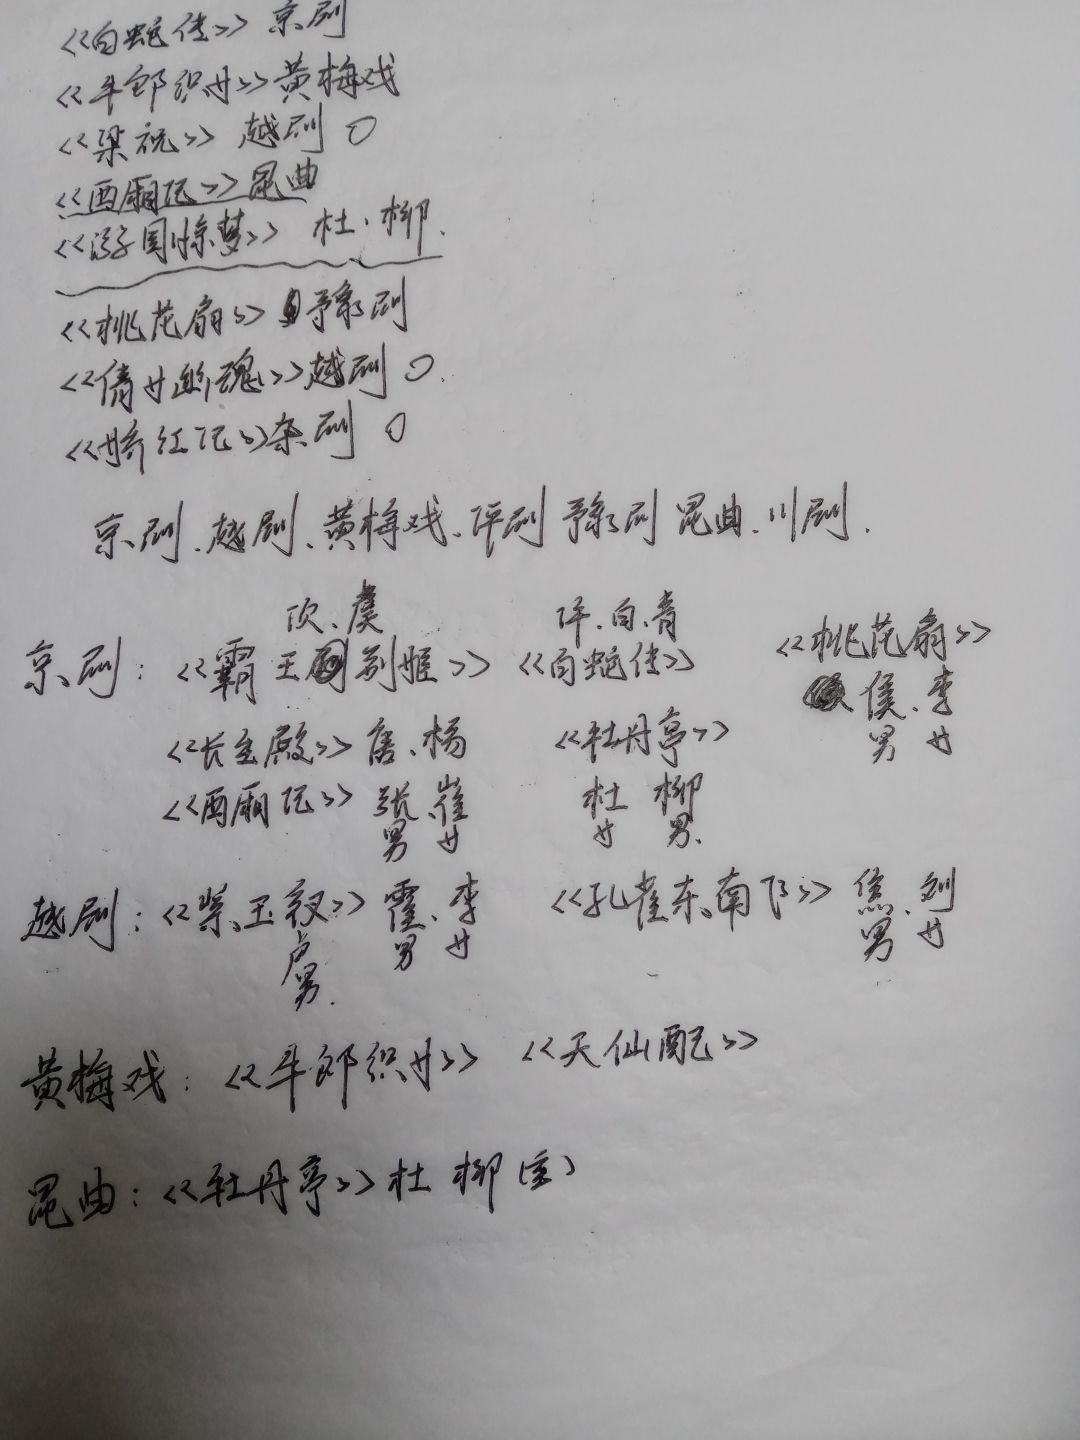 《白蛇传》京剧
《牛郎织女》黄梅戏
《梁祝》越剧 〇
《西厢记》昆曲
《游园惊梦》杜.柳.
《桃花扇》豫剧
《倩女幽魂》越剧 〇.
《娇红记》杂剧 〇
京剧、越剧、黄梅戏、评剧 豫剧 昆曲、川剧.
项、虞 许、白、青
京剧：《霸王别姬》《白蛇传》《桃花扇》
侯、李
男 女
《长生殿》唐、杨 《牡丹亭》
《西厢记》张、崔 杜 柳
男 女 女 男.
越剧：《紫玉钗》霍、李 《孔雀东南飞》焦、刘
男 女 男 女
卢
男.
黄梅戏：《牛郎织女》《天仙配》
昆曲：《牡丹亭》杜 柳(主)